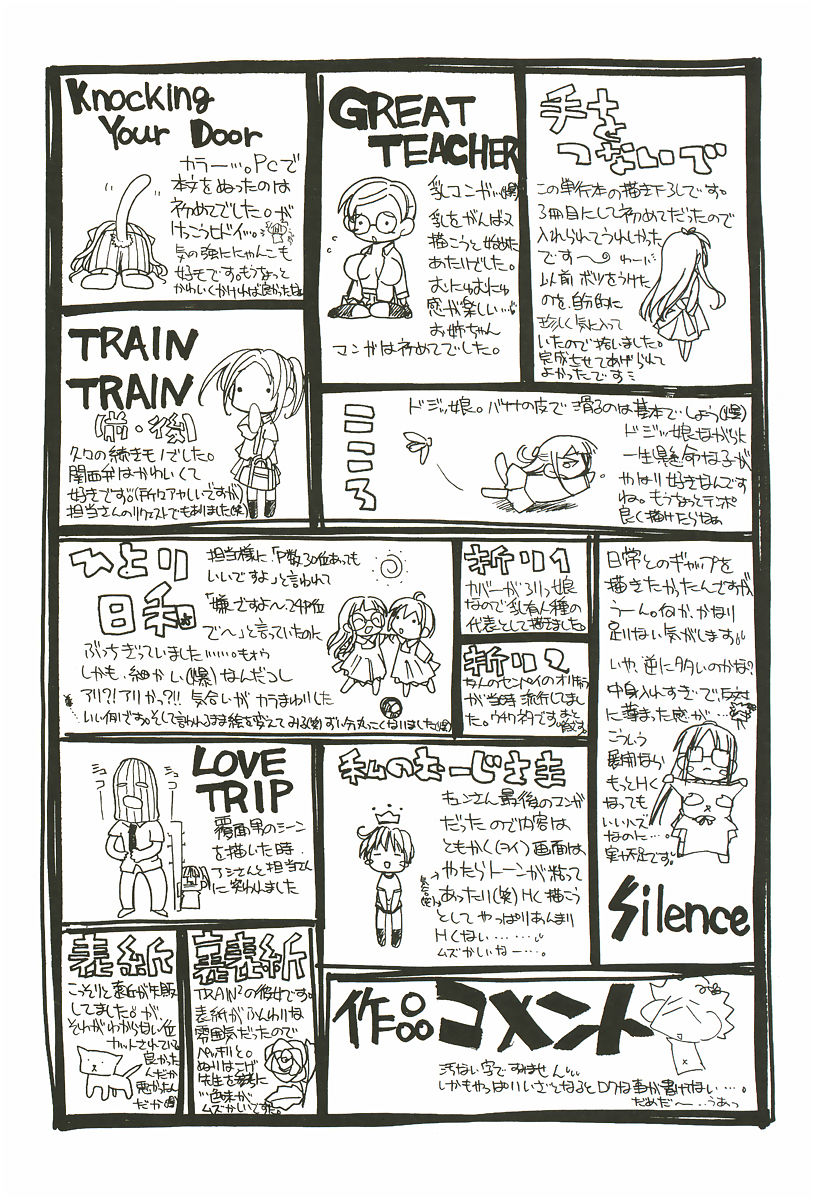 Knocking
Your Door
カラー…。PCで
本文をぬったのは
初めてでした。が
けっこうヒドイ…。
気の強いにゃんこも
好きです。もうちょっと
かわいくかければ良かったな
GREAT
TEACHER
乳コンガ…(爆)
乳をがんばって
描こうと始めた
あたりでした。
むにゅむにゅ
感が楽しい…
お姉ちゃん
マンガは初めてでした。
手と
つないで
この単行本の描き下ろしです。
3冊目にして初めてだったので
入れられてうれしかった
です～
わーい
以前ボツをうけた
のを、自分的に
珍しく気に入って
いたので拾いました。
完成させてあげられて
よかったです
TRAIN
TRAIN
(前・後)
久々の続きモノでした。
関西弁はかわいくて
好きです。
担当さんのリクエストでもありました(笑)
こころ
ドジッ娘。バナナの皮で滑るのは基本でしょう(爆)
ドジッ娘ながらも
一生懸命な子が
かなり好きなんです
ね。もうちょっとテンポ
良く描けたらなぁ
ひとり
日和
担当様に「P数30位あっても
いいですよ」と言われて
「嫌ですよ～24P位
で～」と言っていたのに
ぶっちぎっていました……。もぉぅ
しかも、細かい(爆)なんだコレ
アリ?!アリかっ?!! 気合いがカラまわりした
いい例です。そして言われるまま絵を変えてみる(笑)ずい分丸っこくなりました(爆)
折り1
カバーがろりっ娘
なので乳有人種の
代表として描きました。
折り2
が当時流行してまし
た。
Silence
日常とのギャップを
描きたかったんですが
うーん。何か、かなり
足りない気がします。
いや、逆に多いのかな?
中身入れすぎで反対
に薄まった感が…
こうしう
もっとHく
なっても
いいハズ
なのに…。
LOVE
TRIP
シュコ
シュコ
覆面男のシーン
を描いた時
アシさんと担当さん
に笑われました
私のおーじさま
キュンさん最後のマンガ
だったので内容は
ともかく(コライ)画面は
やたらトーンが粘って
あったり(笑)Hく描こう
としてやっぱりあんまり
Hくない……
ムズかしいなー…。
表紙
こっそりと表紙が失敗
してました。が
それがわからない位
カットされてて
良かった
んだか
悪かったん
だか(爆)
裏表紙
TRAIN²の彼女です。
表紙がふんわりな
雰囲気だったので
ペッキリと。
ぬりはこげ
先生を参考に
…色味が
ムズかしいです。
作品コメント
汚ない字ですみません
しかもやっぱりいざとなるとロクな事が書けない…。
だめだ～…うあっ